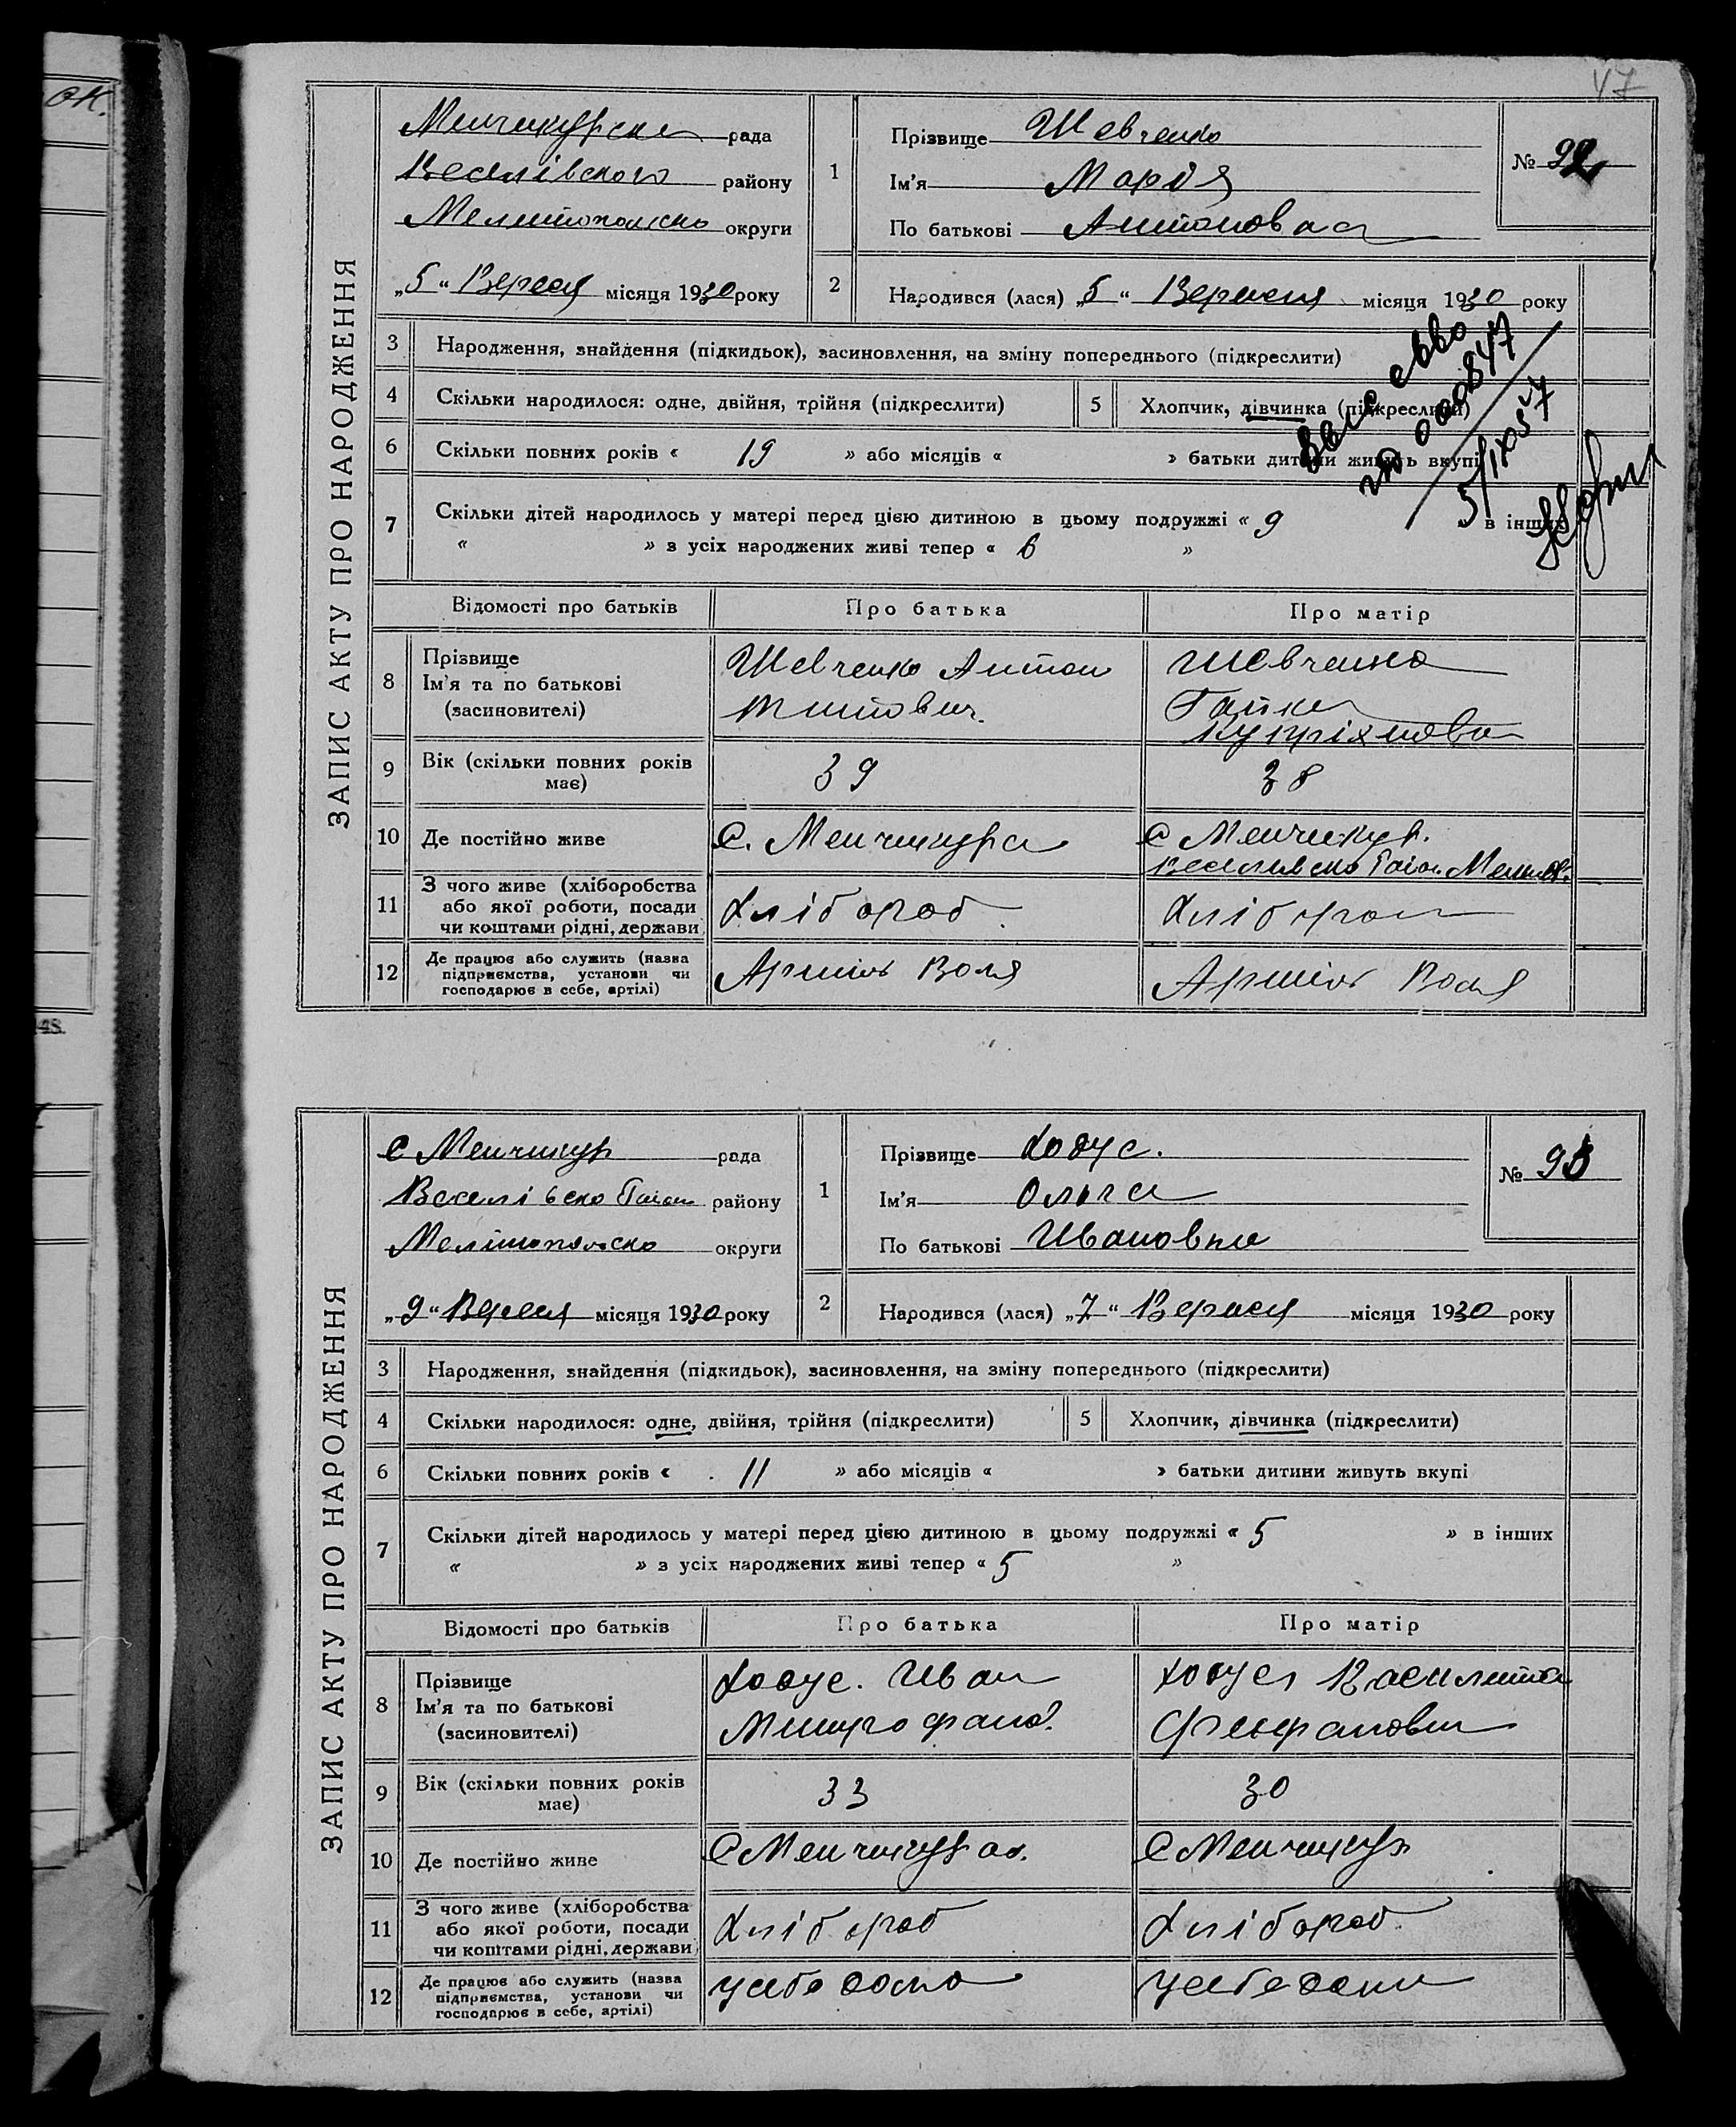 ок.
47
ЗАПИС АКТУ ПРО НАРОДЖЕННЯ
Менчикурска рада
Веселівского району
Мелитопольско округи
„5“ Вересня місяця 1930 року
1
Прізвище Шевченко
Ім'я Марія
По батькові Антоновна
№ 92
2
Народився (лася) „5“ Вересня місяця 1930 року
3 Народження, знайдення (підкидьок), засиновлення, на зміну попереднього (підкреслити)
4 Скільки народилося: одне, двійня, трійня (підкреслити) 5 Хлопчик, дівчинка (підкреслити)
6 Скільки повних років « 19 » або місяців « » батьки дитини живуть вкупі
7 Скільки дітей народилось у матері перед цією дитиною в цьому подружжі « 9 » в інших
« » з усіх народжених живі тепер « 6 »
Відомості про батьків Про батька Про матір
8 Прізвище Ім'я та по батькові (засиновителі)
Шевченко Антон
Титович.
Шевченко
Гапка
Купріяновна
9 Вік (скільки повних років має) 39 38
10 Де постійно живе С. Менчикура С Менчикур.
11 З чого живе (хліборобства або якої роботи, посади чи коштами рідні, держави Хлібороб Хлібороб
12 Де працює або служить (назва підприємства, установи чи господарює в себе, артілі) Артіль Воля Артіль Воля
48.
ЗАПИС АКТУ ПРО НАРОДЖЕННЯ
С Менчикур рада
Веселівско Район району
Мелітопольско округи
„9“ Вересня місяця 1930 року
1
Прізвище Ходус.
Ім'я Ольга
По батькові Ивановна
№ 93
2
Народився (лася) „7“ Вересня місяця 1930 року
3 Народження, знайдення (підкидьок), засиновлення, на зміну попереднього (підкреслити)
4 Скільки народилося: одне, двійня, трійня (підкреслити) 5 Хлопчик, дівчинка (підкреслити)
6 Скільки повних років « 11 » або місяців « » батьки дитини живуть вкупі
7 Скільки дітей народилось у матері перед цією дитиною в цьому подружжі « 5 » в інших
« » з усіх народжених живі тепер « 5 »
Відомості про батьків Про батька Про матір
8 Прізвище Ім'я та по батькові (засиновителі)
Ходус. Иван
Митрофанов.
Ходус
9 Вік (скільки повних років має) 33 30
10 Де постійно живе С Менчикур С Менчикур
11 З чого живе (хліборобства або якої роботи, посади чи коштами рідні, держави Хлібороб Хлібороб
12 Де працює або служить (назва підприємства, установи чи господарює в себе, артілі) у себе дома у себе дома